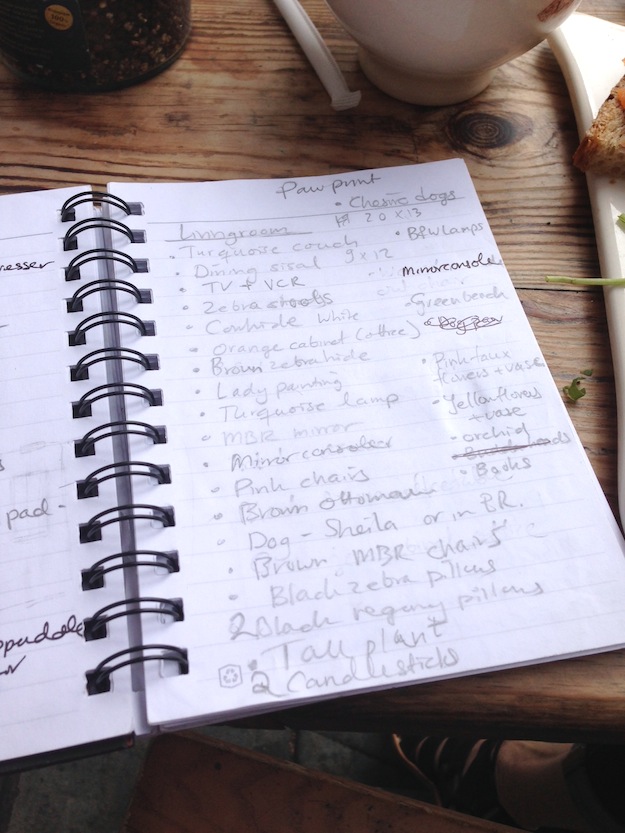 Paw print
• Chosing dogs
Livingroom
20 x 13
• Turquoise couch
• B+W lamps
• Dining sisal 9 x 12
• TV + VCR
Mirror consoles
• Zebra stools
• Green bench
• Cowhide white
• Orange cabinet (office)
• Brown zebrahide
• Pink faux
flowers + vase
• Lady painting
• Turquoise lamp
• Yellow flowers
+ vase
• MBR mirror
- orchid
• Mirror consoles
• Books
• Pink chairs
• Brown ottoman
• Dog - Sheila or in
• Brown MBR chairs
• Black zebra pillows
2 Black regency pillows
• Tall plant
2 Candlesticks
nesser
pad -